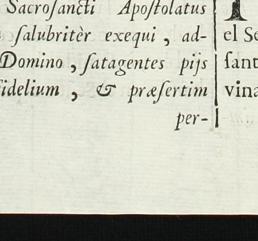 Sacroſancti Apoſtolatus
ſalubritèr exequi, ad-
Domino, ſatagentes pijs
fidelium, & præſertim
per-
el Se
ſant
vina